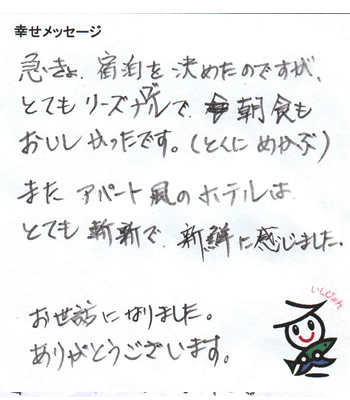 幸せメッセージ
急きょ、宿泊を決めたのですが、
とてもリーズナブルで、朝食も
おいしかったです。(とくに めかぶ)
また アパート風のホテルは
とても斬新で、新鮮に感じました。
お世話になりました。
ありがとうございます。
いしぴょん